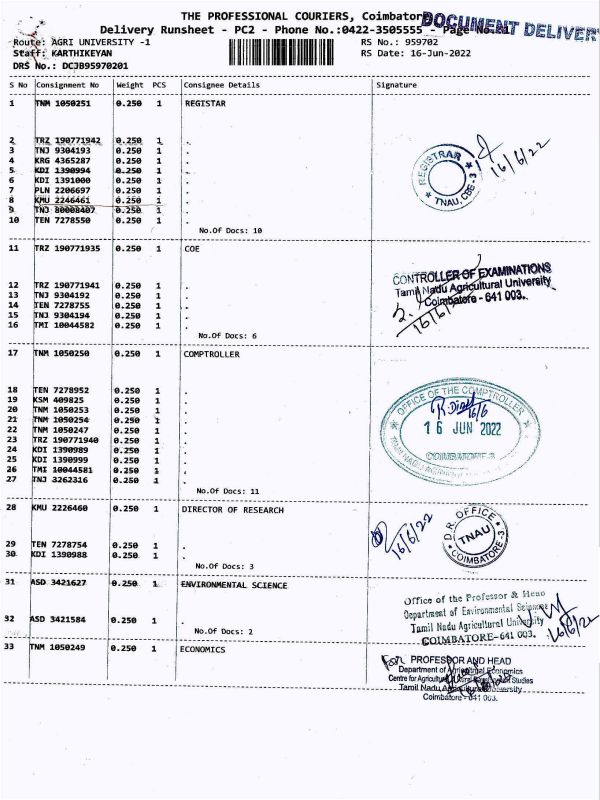 THE PROFESSIONAL COURIERS, Coimbatore
DOCUMENT DELIVER
Delivery Runsheet - PC2 - Phone No.:0422-3505555 - Page No.
Route: AGRI UNIVERSITY -1 RS No.: 959702
Staff: KARTHIKEYAN RS Date: 16-Jun-2022
DRS No.: DCJB95970201
S No Consignment No Weight PCS Consignee Details Signature
1 TNM 1050251 0.250 1 REGISTAR
2 TRZ 190771942 0.250 1 .
3 TNJ 9304193 0.250 1 .
4 KRG 4365287 0.250 1 .
5 KDI 1390994 0.250 1 .
6 KDI 1391000 0.250 1 .
7 PLN 2206697 0.250 1 .
8 KMU 2246461 0.250 1 .
9 TNJ 80008407 0.250 1 .
10 TEN 7278550 0.250 1 .
No.Of Docs: 10
REGISTRAR
TNAU, CBE-3
16/6/22
11 TRZ 190771935 0.250 1 COE
12 TRZ 190771941 0.250 1 .
13 TNJ 9304192 0.250 1 .
14 TEN 7278755 0.250 1 .
15 TNJ 9304194 0.250 1 .
16 TMI 10044582 0.250 1 .
No.Of Docs: 6
CONTROLLER OF EXAMINATIONS
Tamil Nadu Agricultural University
Coimbatore - 641 003.
17 TNM 1050250 0.250 1 COMPTROLLER
18 TEN 7278952 0.250 1 .
19 KSM 409825 0.250 1 .
20 TNM 1050253 0.250 1 .
21 TNM 1050254 0.250 1 .
22 TNM 1050247 0.250 1 .
23 TRZ 190771940 0.250 1 .
24 KDI 1390989 0.250 1 .
25 KDI 1390999 0.250 1 .
26 TMI 10044581 0.250 1 .
27 TNJ 3262316 0.250 1 .
No.Of Docs: 11
OFFICE OF THE COMPTROLLER
16/6
16 JUN 2022
COIMBATORE-3
28 KMU 2226460 0.250 1 DIRECTOR OF RESEARCH
29 TEN 7278754 0.250 1 .
30 KDI 1390988 0.250 1 .
No.Of Docs: 3
16/6/22
D.R. OFFICE
TNAU
COIMBATORE-3
31 ASD 3421627 0.250 1 ENVIRONMENTAL SCIENCE
32 ASD 3421584 0.250 1 .
No.Of Docs: 2
Office of the Professor & Head
Department of Environmental Sciences
Tamil Nadu Agricultural University
COIMBATORE-641 003.
16/6/22
33 TNM 1050249 0.250 1 ECONOMICS
For PROFESSOR AND HEAD
Department of Agricultural Economics
Centre for Agricultural Studies
Tamil Nadu Agricultural University
Coimbatore - 641 003.